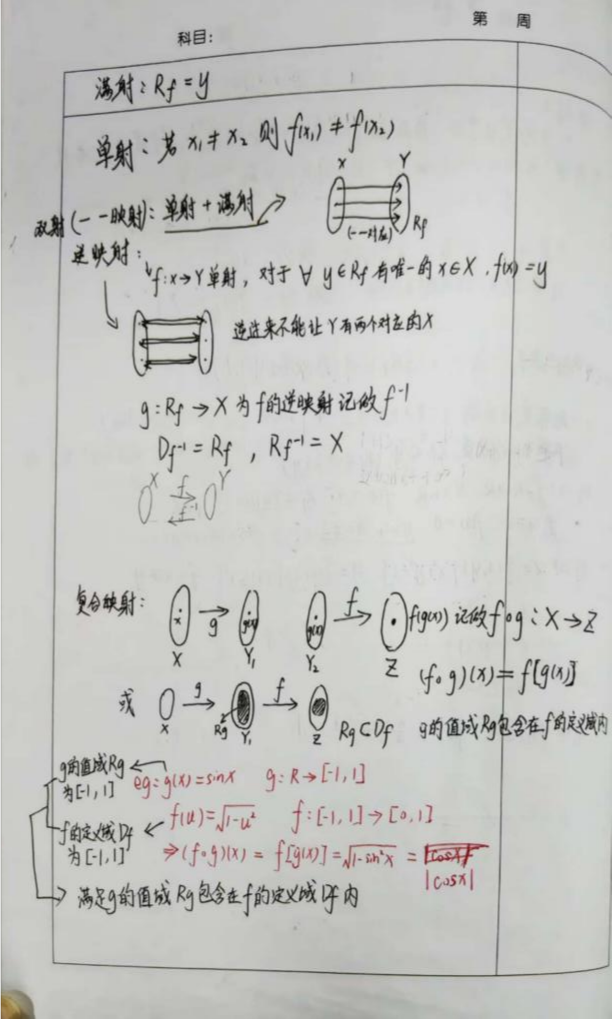 第 周
科目:
满射: Rf = y
单射: 若 x₁ ≠ x₂ 则 f(x₁) ≠ f(x₂)
X Y
双射(一一映射): 单射 + 满射
(一一对应) Rf
逆映射:
f: x → Y 单射, 对于 ∀ y ∈ Rf 有唯一的 x ∈ X, f(x) = y
逆过来不能让Y有两个对应的X
g: Rf → X 为f的逆映射 记做 f⁻¹
Df⁻¹ = Rf , Rf⁻¹ = X
X f Y
f⁻¹
复合映射: x g g(x) g(x) f f(g(x)) 记做 f∘g: X → Z
X Y₁ Y₂ Z
(f∘g)(x) = f[g(x)]
或 g f
X Rg Y₁ Z Rg⊂Df g的值域Rg包含在f的定义域内
g的值域Rg 为[-1,1]
eg: g(x) = sinx g: R → [-1,1]
f(u) = √1-u² f: [-1,1] → [0,1]
f的定义域Df 为[-1,1]
⇒ (f∘g)(x) = f[g(x)] = √1-sin²x = |cosx|
满足g的值域Rg包含在f的定义域Df内